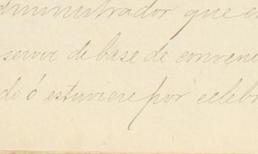 administrador que es
servir de base de conveni
do ó estuviere por celebr